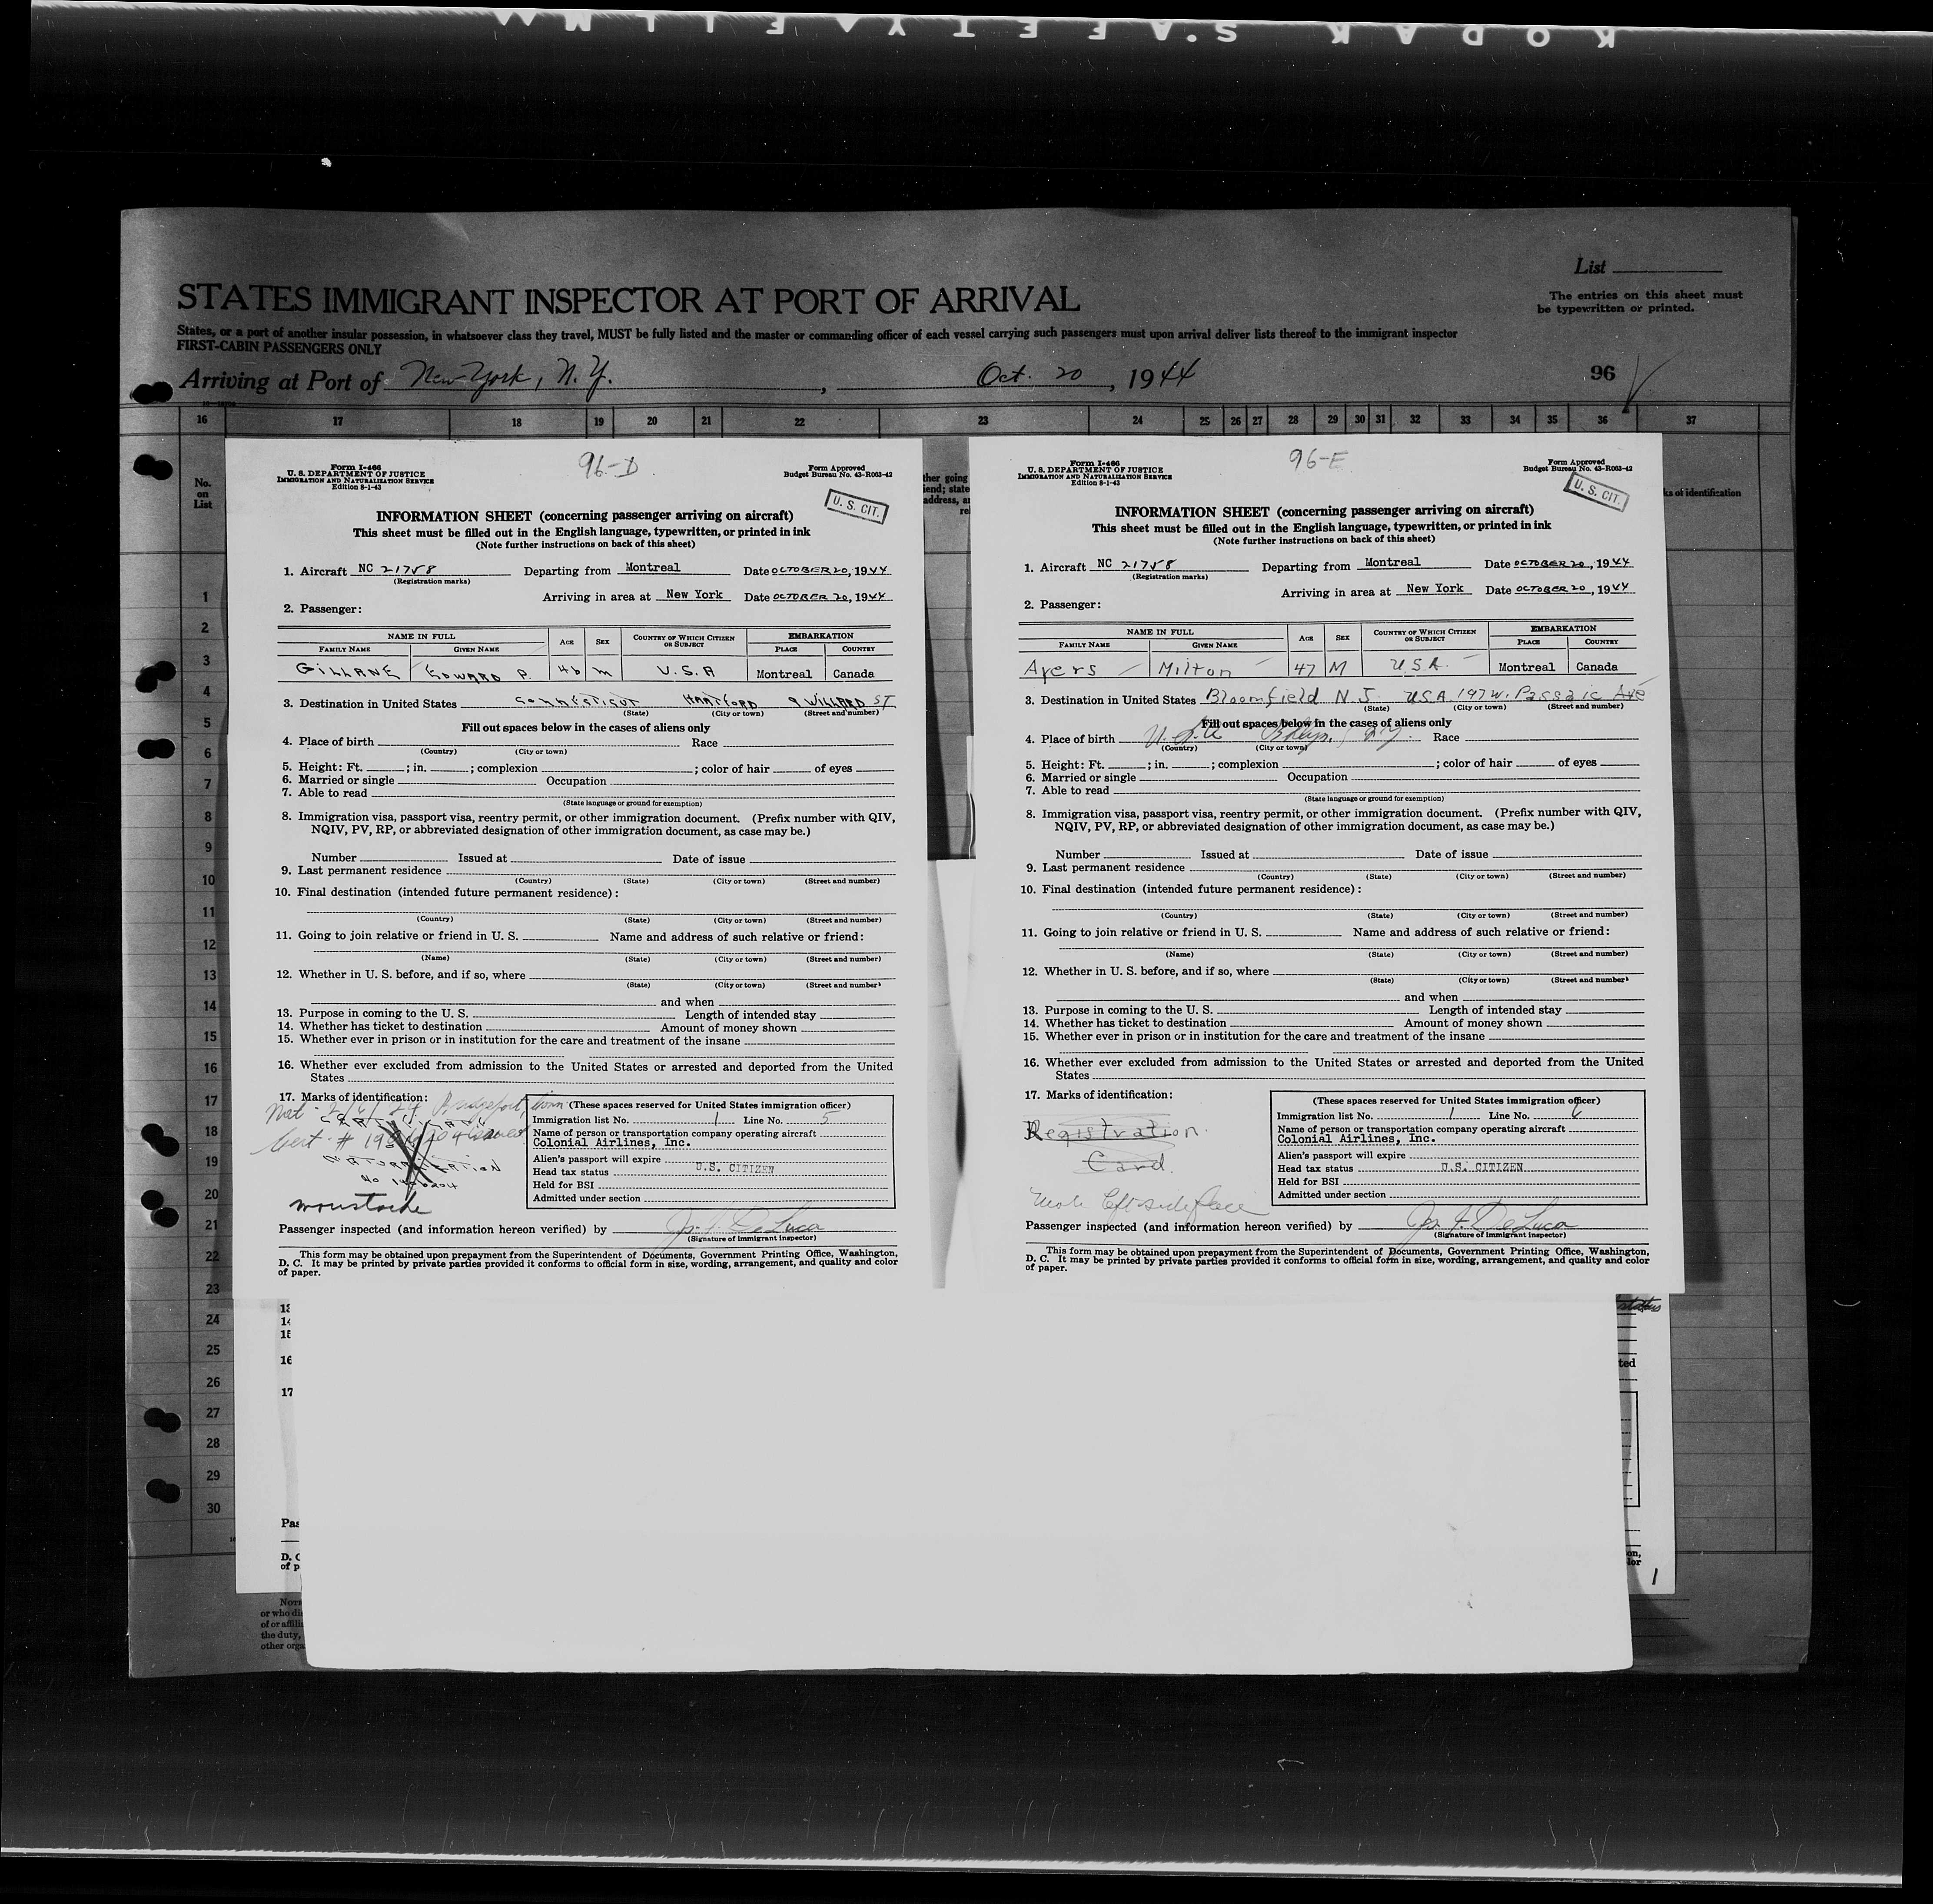 KODAK SAFETY FILM
List
STATES IMMIGRANT INSPECTOR AT PORT OF ARRIVAL
The entries on this sheet must
be typewritten or printed.
States, or a port of another insular possession, in whatsoever class they travel, MUST be fully listed and the master or commanding officer of each vessel carrying such passengers must upon arrival deliver lists thereof to the immigrant inspector
FIRST-CABIN PASSENGERS ONLY
Arriving at Port of New York, N.Y., Oct. 20, 1944
96
16 17 18 19 20 21 22 23 24 25 26 27 28 29 30 31 32 33 34 35 36 37
No.
on
List
1
2
3
4
5
6
7
8
9
10
11
12
13
14
15
16
17
18
19
20
21
22
23
24
25
26
27
28
29
30
Form I-466
U. S. DEPARTMENT OF JUSTICE
IMMIGRATION AND NATURALIZATION SERVICE
Edition 8-1-43
96-D
Form Approved
Budget Bureau No. 43-R063-42
U. S. CIT.
INFORMATION SHEET (concerning passenger arriving on aircraft)
This sheet must be filled out in the English language, typewritten, or printed in ink
(Note further instructions on back of this sheet)
1. Aircraft NC 21758 Departing from Montreal Date OCTOBER 20, 1944
(Registration marks)
Arriving in area at New York Date OCTOBER 20, 1944
2. Passenger:
NAME IN FULL AGE SEX COUNTRY OF WHICH CITIZEN OR SUBJECT EMBARKATION
FAMILY NAME GIVEN NAME PLACE COUNTRY
GILLANE EDWARD P. 46 M U.S.A Montreal Canada
3. Destination in United States CONNECTICUT HARTFORD 9 WILLARD ST
(State) (City or town) (Street and number)
Fill out spaces below in the cases of aliens only
4. Place of birth Race
(Country) (City or town)
5. Height: Ft. ; in. ; complexion ; color of hair of eyes
6. Married or single Occupation
7. Able to read
(State language or ground for exemption)
8. Immigration visa, passport visa, reentry permit, or other immigration document. (Prefix number with QIV,
NQIV, PV, RP, or abbreviated designation of other immigration document, as case may be.)
Number Issued at Date of issue
9. Last permanent residence
(Country) (State) (City or town) (Street and number)
10. Final destination (intended future permanent residence):
(Country) (State) (City or town) (Street and number)
11. Going to join relative or friend in U. S. Name and address of such relative or friend:
(Name) (State) (City or town) (Street and number)
12. Whether in U. S. before, and if so, where
(State) (City or town) (Street and number)
and when
13. Purpose in coming to the U. S. Length of intended stay
14. Whether has ticket to destination Amount of money shown
15. Whether ever in prison or in institution for the care and treatment of the insane
16. Whether ever excluded from admission to the United States or arrested and deported from the United
States
17. Marks of identification:
Bridgeport, Conn
Cert. #
moustache
(These spaces reserved for United States immigration officer)
Immigration list No. 1 Line No. 5
Name of person or transportation company operating aircraft
Colonial Airlines, Inc.
Alien's passport will expire
Head tax status U.S. CITIZEN
Held for BSI
Admitted under section
Passenger inspected (and information hereon verified) by Jos. J. DeLuca
(Signature of immigrant inspector)
This form may be obtained upon prepayment from the Superintendent of Documents, Government Printing Office, Washington,
D. C. It may be printed by private parties provided it conforms to official form in size, wording, arrangement, and quality and color
of paper.
Form I-466
U. S. DEPARTMENT OF JUSTICE
IMMIGRATION AND NATURALIZATION SERVICE
Edition 8-1-43
96-E
Form Approved
Budget Bureau No. 43-R063-42
U. S. CIT.
INFORMATION SHEET (concerning passenger arriving on aircraft)
This sheet must be filled out in the English language, typewritten, or printed in ink
(Note further instructions on back of this sheet)
1. Aircraft NC 21758 Departing from Montreal Date OCTOBER 20, 1944
(Registration marks)
Arriving in area at New York Date OCTOBER 20, 1944
2. Passenger:
NAME IN FULL AGE SEX COUNTRY OF WHICH CITIZEN OR SUBJECT EMBARKATION
FAMILY NAME GIVEN NAME PLACE COUNTRY
Ayers Milton 47 M USA Montreal Canada
3. Destination in United States Bloomfield N.J. USA 197 W. Passaic Ave
(State) (City or town) (Street and number)
Fill out spaces below in the cases of aliens only
4. Place of birth Bklyn. N.Y. Race
(Country) (City or town)
5. Height: Ft. ; in. ; complexion ; color of hair of eyes
6. Married or single Occupation
7. Able to read
(State language or ground for exemption)
8. Immigration visa, passport visa, reentry permit, or other immigration document. (Prefix number with QIV,
NQIV, PV, RP, or abbreviated designation of other immigration document, as case may be.)
Number Issued at Date of issue
9. Last permanent residence
(Country) (State) (City or town) (Street and number)
10. Final destination (intended future permanent residence):
(Country) (State) (City or town) (Street and number)
11. Going to join relative or friend in U. S. Name and address of such relative or friend:
(Name) (State) (City or town) (Street and number)
12. Whether in U. S. before, and if so, where
(State) (City or town) (Street and number)
and when
13. Purpose in coming to the U. S. Length of intended stay
14. Whether has ticket to destination Amount of money shown
15. Whether ever in prison or in institution for the care and treatment of the insane
16. Whether ever excluded from admission to the United States or arrested and deported from the United
States
17. Marks of identification:
Registration
Card
Mole left side face
(These spaces reserved for United States immigration officer)
Immigration list No. 1 Line No. 6
Name of person or transportation company operating aircraft
Colonial Airlines, Inc.
Alien's passport will expire
Head tax status U.S. CITIZEN
Held for BSI
Admitted under section
Passenger inspected (and information hereon verified) by Jos. J. DeLuca
(Signature of immigrant inspector)
This form may be obtained upon prepayment from the Superintendent of Documents, Government Printing Office, Washington,
D. C. It may be printed by private parties provided it conforms to official form in size, wording, arrangement, and quality and color
of paper.